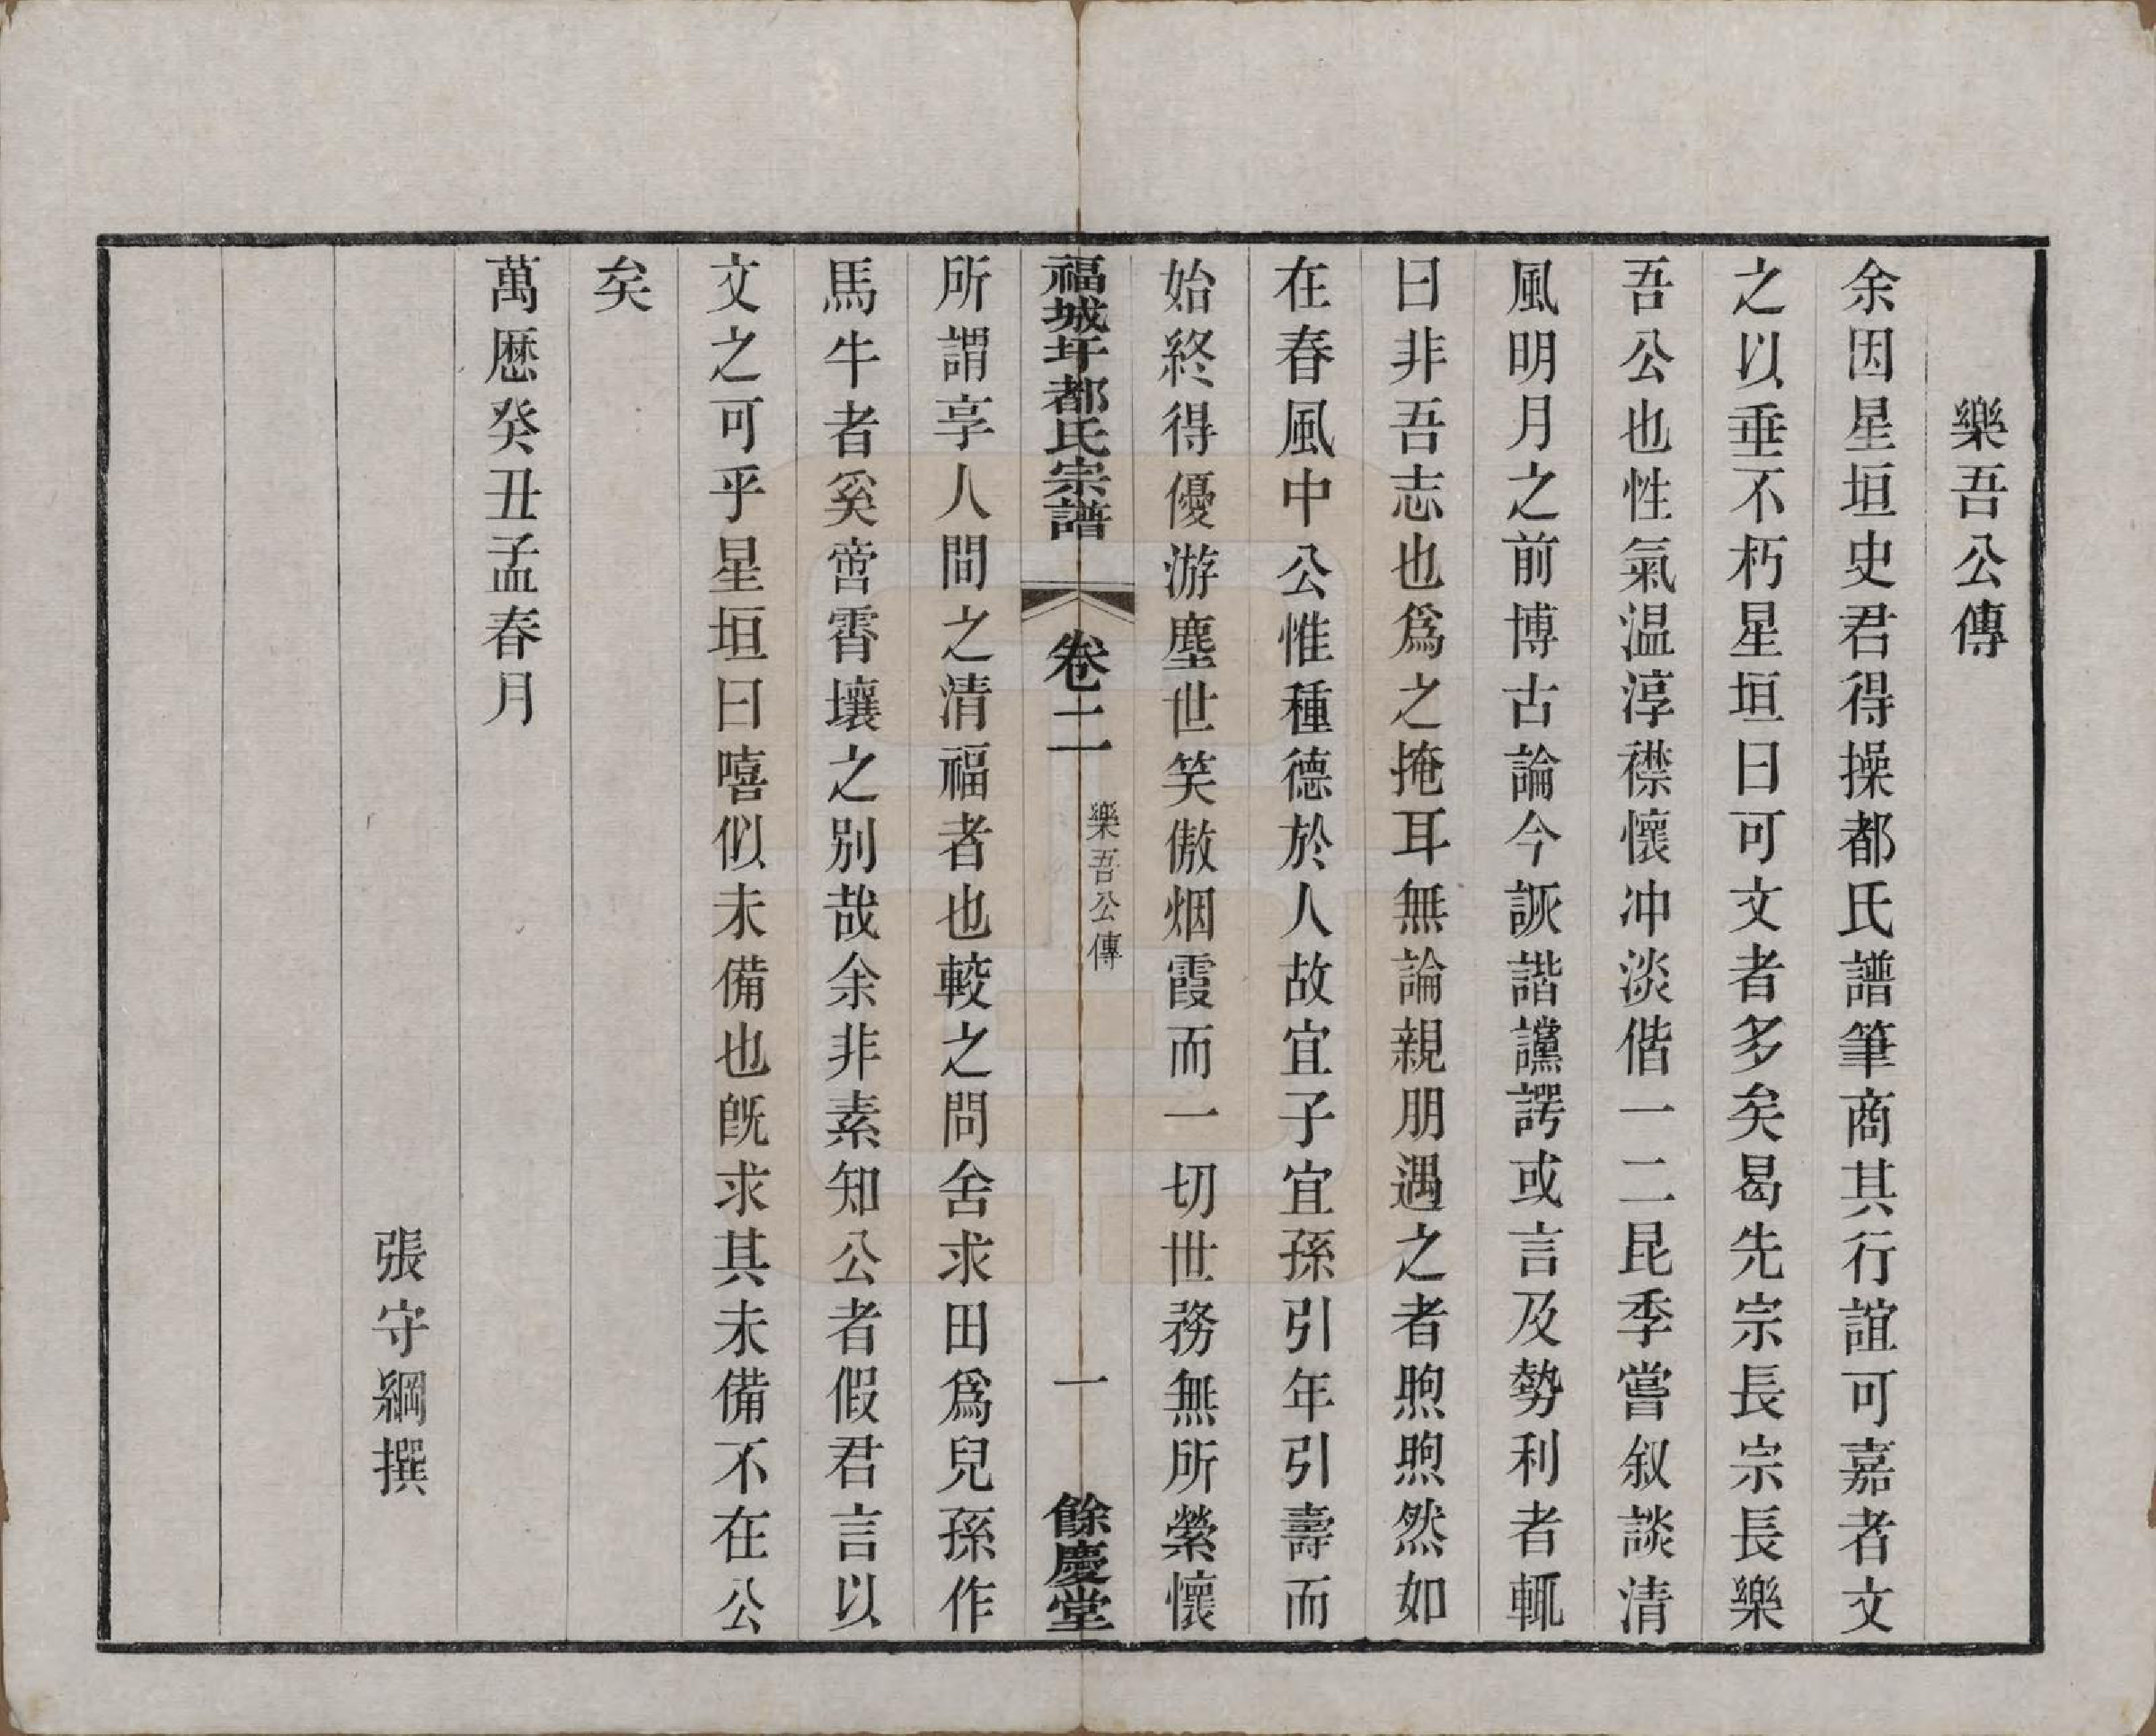 樂吾公傳
余因星垣史君得操都氏譜筆商其行誼可嘉者文
之以垂不朽星垣曰可文者多矣曷先宗長宗長樂
吾公也性氣温淳襟懷冲淡偕一二昆季嘗叙談清
風明月之前博古論今詼諧讜諤或言及勢利者輒
曰非吾志也爲之掩耳無論親朋遇之者煦煦然如
在春風中公惟種德於人故宜子宜孫引年引壽而
始終得優游塵世笑傲烟霞而一切世務無所縈懷
福城圩都氏宗譜
卷二
樂吾公傳
一
餘慶堂
所謂享人間之清福者也較之問舍求田爲兒孫作
馬牛者奚啻霄壤之别哉余非素知公者假君言以
文之可乎星垣曰嘻似未備也旣求其未備不在公
矣
萬厯癸丑孟春月
張守綱撰